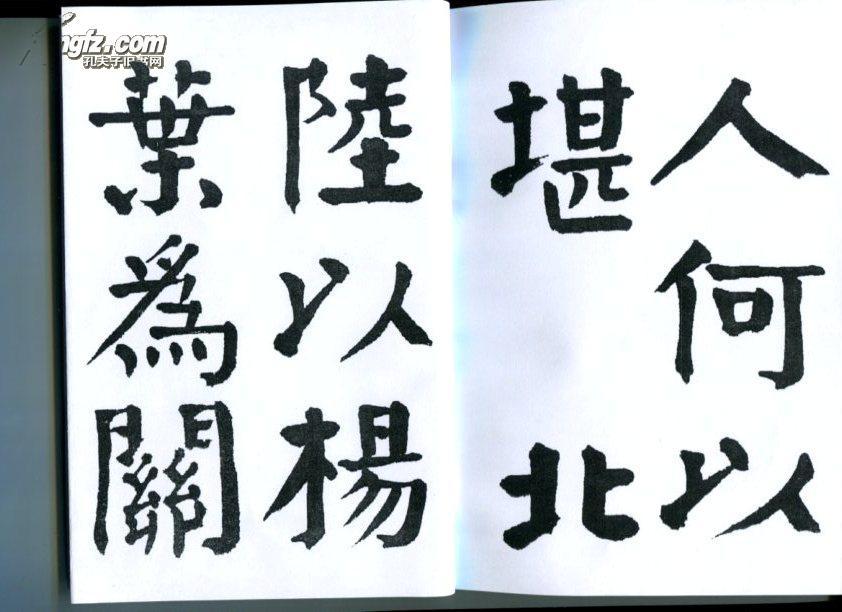 人何以
堪 北
陸以楊
葉為關
ngfz.com
孔夫子旧书网